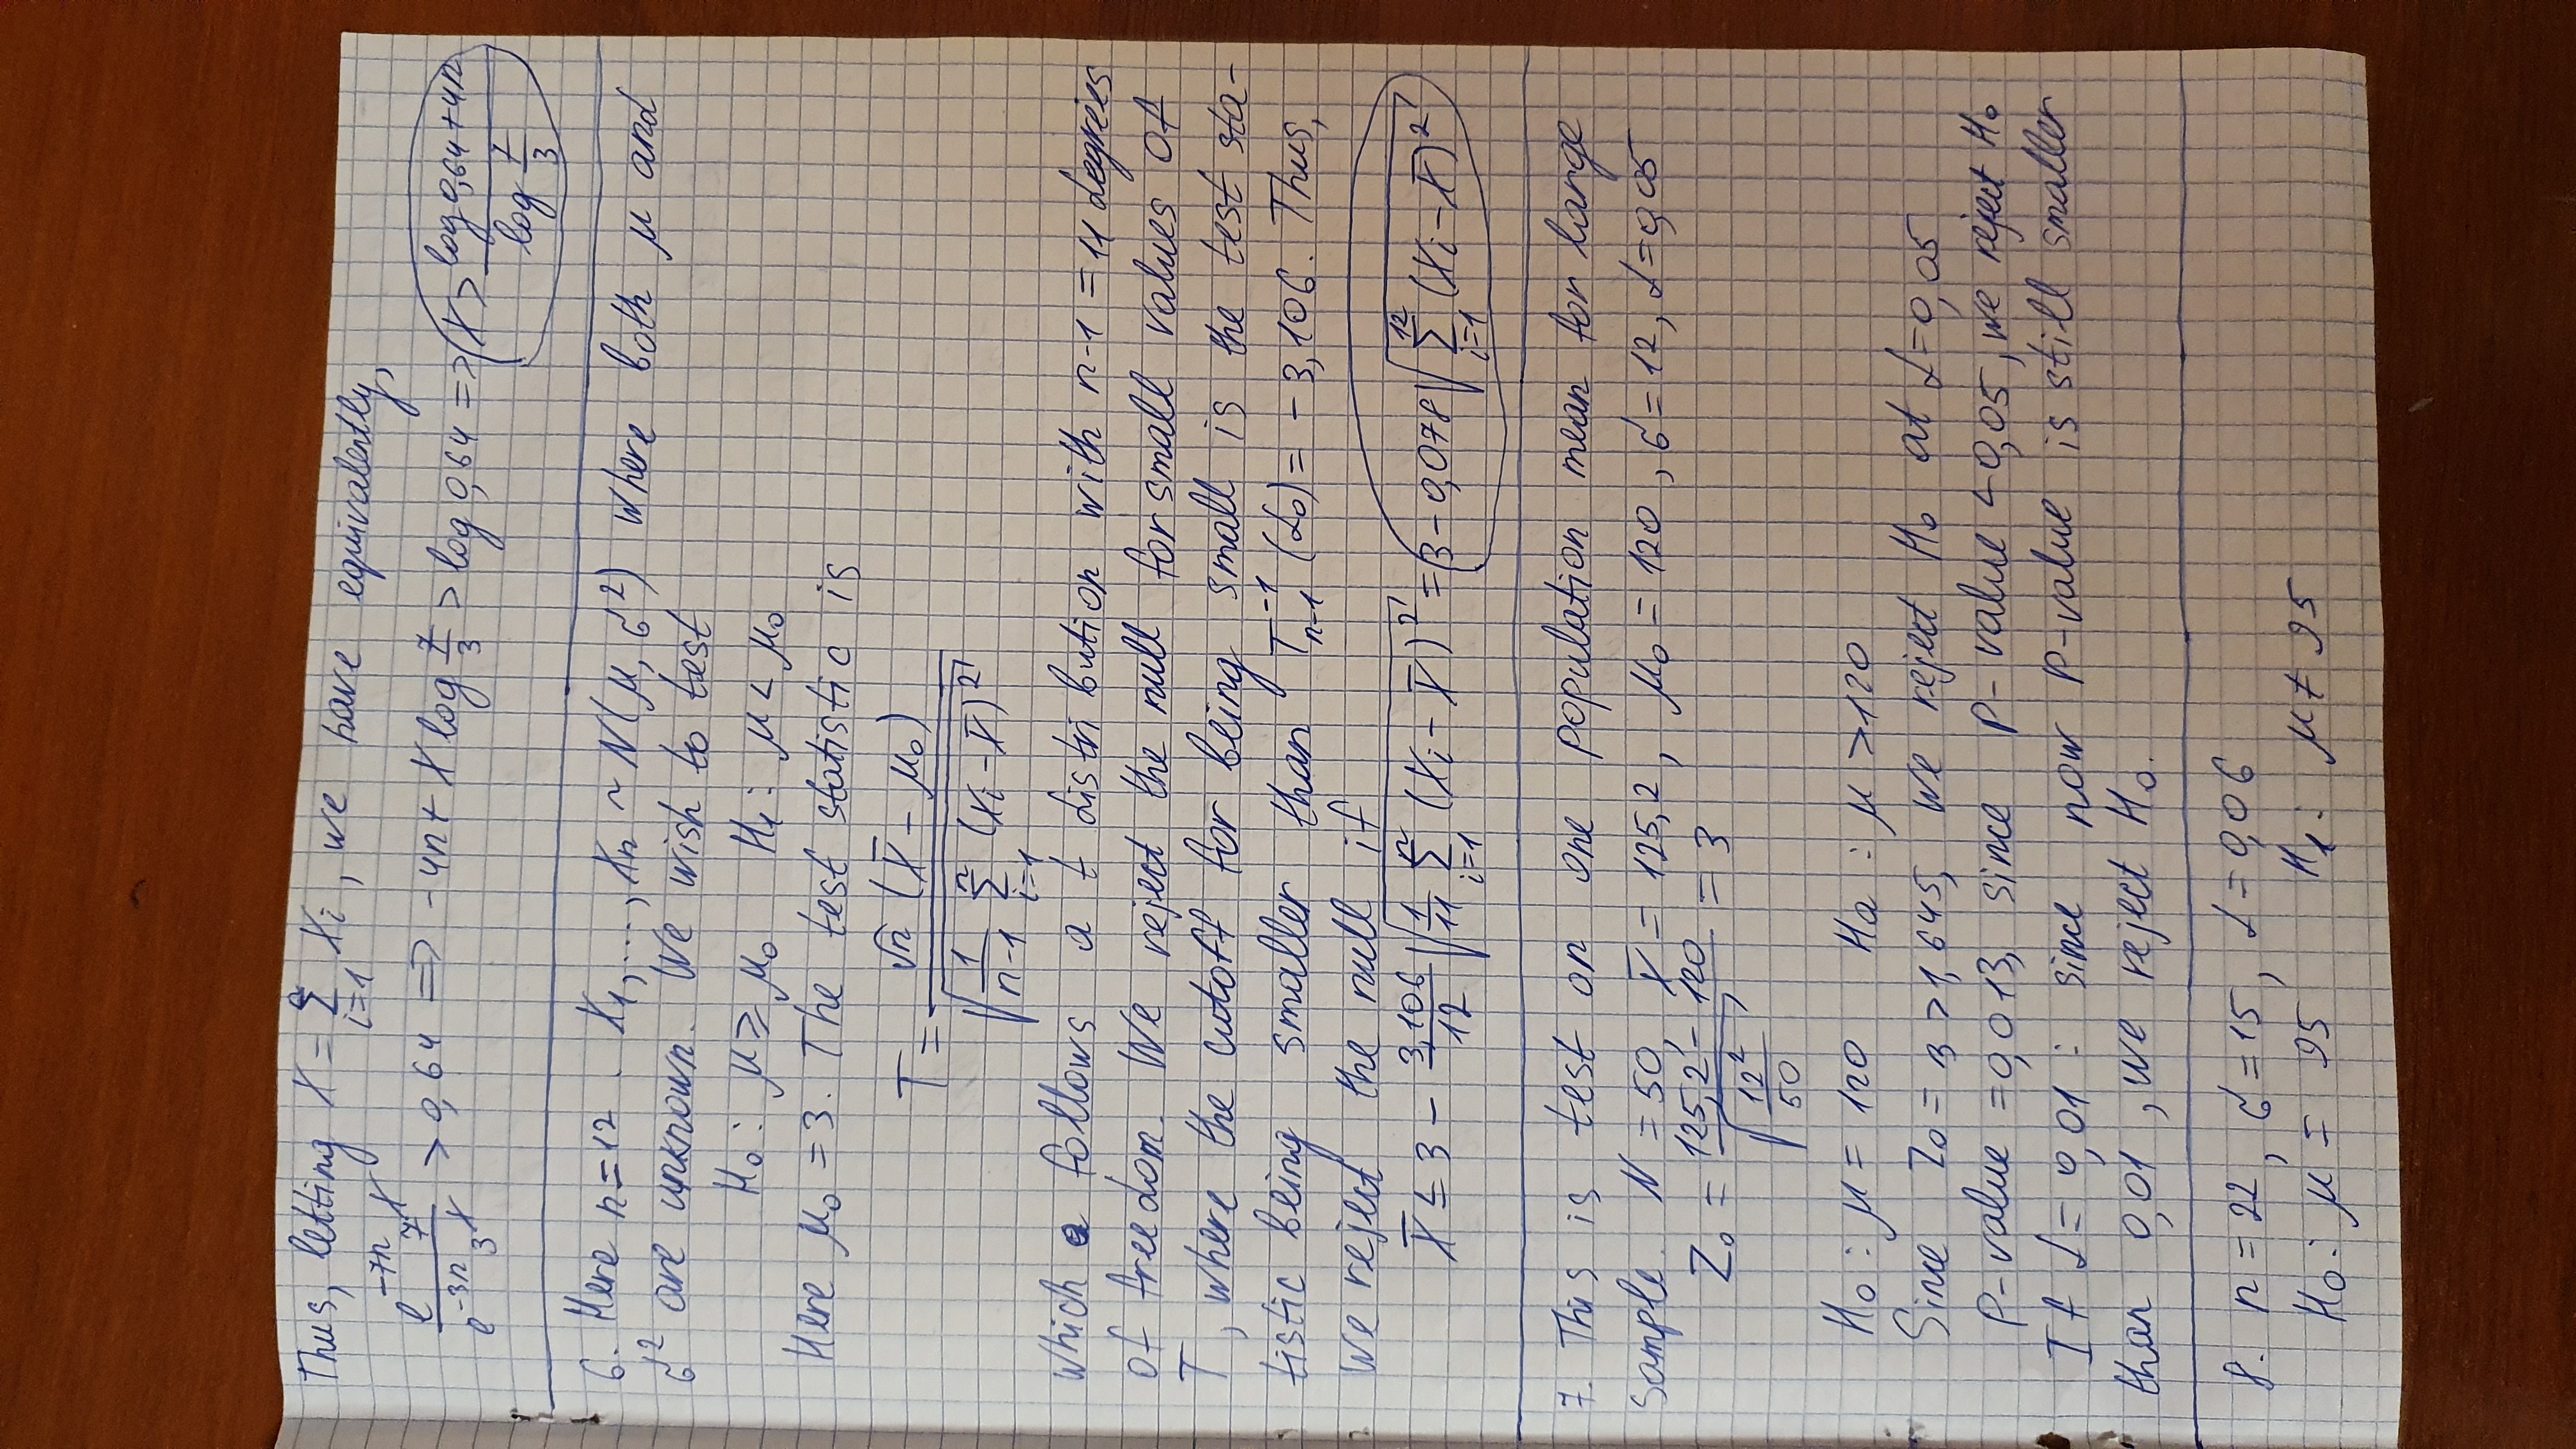 Thus, letting X = Σ_{i=1}^{n} X_i, we have equivalently,
e^{-7n} 7^X / e^{-3n} 3^X > 0,64 => -4n + X log 7/3 > log 0,64 => X > (log 0,64 + 4n) / (log 7/3)
6. Here n=12. X_1, ..., X_n ~ N(μ, σ²) where both μ and
σ² are unknown. We wish to test
H_0: μ ≥ μ_0 H_1: μ < μ_0
Here μ_0 = 3. The test statistic is
T = √n (X̄ - μ_0) / √(1/(n-1) Σ_{i=1}^{n} (X_i - X̄)²)
which follows a t distribution with n-1 = 11 degrees
of freedom. We reject the null for small values of
T, where the cutoff for being small is the test sta-
tistic being smaller than T_{n-1}^{-1} (α_0) = -3,106. Thus,
we reject the null if
X̄ ≤ 3 - 3,106/12 √(1/11 Σ_{i=1}^{n} (X_i - X̄)²) = 3 - 0,078 √(Σ_{i=1}^{12} (X_i - X̄)²)
7. This is test on one population mean for large
sample. N = 50, X̄ = 125,2, μ_0 = 120, σ = 12, α = 0,05
Z_0 = (125,2 - 120) / √(12²/50) = 3
H_0: μ = 120 H_a: μ > 120
Since Z_0 = 3 > 1,645, we reject H_0 at α = 0,05
p-value = 0,013, since p-value < 0,05, we reject H_0
If α = 0,01: since now p-value is still smaller
than 0,01, we reject H_0.
8. n = 22, σ = 15, α = 0,06
H_0: μ = 95 H_1: μ ≠ 95